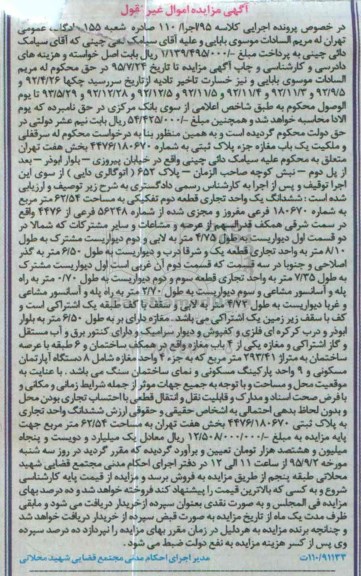 آگهی مزایده اموال غیر منقول
در خصوص پرونده اجرایی کلاسه ۷۹۵اجرا/ ۱۱۰ صادره شعبه ۱۵۵ دادگاه عمومی
تهران له مریم السادات موسوی بابایی و علیه آقای سیامک دائی چینی که آقای سیامک
دائی چینی به پرداخت مبلغ ۷/۱۳۹/۴۹۵/۰۰۰ ریال بابت اصل خواسته و هزینه های
دادرسی و کارشناسی و چاپ آگهی مزایده تا تاریخ ۹۵/۷/۲۴ در حق محکوم له مریم
السادات موسوی بابایی و نیز خسارت تاخیر تادیه ازتاریخ سررسید چکها ۹۲/۴/۲۶ و
۹۲/۹/۵ و ۹۲/۱۱/۳ و ۹۲/۱۱/۴ و ۹۲/۱۱/۵ و ۹۲/۱۲/۵ و ۹۲/۱۲/۲۸ و ۹۳/۵/۲۹ تا یوم
الوصول محکوم به طبق شاخص اعلامی از سوی بانک مرکزی در حق نامبرده که یوم
الادا محاسبه خواهد شد و همچنین مبلغ ۵۴/۴۲۵/۰۰۰ ریال بابت نیم عشر دولتی در
حق دولت محکوم گردیده است و به همین منظور بنا به درخواست محکوم له سرقفلی
و ملکیت یک باب مغازه جزء پلاک ثبتی به شماره ۴۴۷۶/۱۸۰۶۷۰ بخش هفت تهران
متعلق به محکوم علیه سیامک دائی چینی واقع در خیابان پیروزی – بلوار ابوذر – بعد
از پل دوم – نبش کوچه صاحب الزمان – پلاک ۶۵۲ ( اتوگالری دایی ) از سوی این
اجرا توقیف و پس از اجرا به کارشناس رسمی دادگستری به شرح زیر توصیف و ارزیابی
شده است : ششدانگ یک واحد تجاری قطعه دوم تفکیکی به مساحت ۶۲/۵۴ متر مربع
به شماره ۱۸۰۶۷۰ فرعی مفروز و مجزی شده از شماره ۵۶۲۴۸ فرعی از ۴۴۷۶ واقع
در سمت شرقی همکف قدرالسهم از عرصه و مشاعات و سایر مشترکات که شمالا در
دو قسمت اول دیواریست به طول ۴/۷۵ متر به لابی و دوم دیواریست مشترک به طول
۸/۱۰ متر به واحد تجاری قطعه یک و شرقا درب و دیواریست به طول ۶/۵۰ متر به گذر
اصلاحی و جنوبا در سه قسمت که قسمت دوم آن غربی است اول دیواریست مشترک
به طول ۷/۳۵ متر به واحد تجاری قطعه سوم و دوم دیواریست به طول ۰/۷۰ متر به راه
پله و آسانسور مشاعی و سوم دیواریست به طول ۲/۷۰ متر به راه پله و آسانسور مشاعی
و غربا دیواریست به طول ۴/۷۳ متر به لابی و سقف با کف طبقه یک اشتراکی است و
کف با سقف زیر زمین یک اشتراکی می باشد. مغازه دارای بر به طول ۶/۵۰ متر به بلوار
ابوذر و درب کرکره ای فلزی و کفپوش و دیوار سرامیک و دارای کنتور برق و آب مستقل
و گاز اشتراکی و مغازه یکی از ۴ باب مغازه واقع در همکف ساختمان و ۶ طبقه با عرصه
ساختمان به متراژ ۲۹۳/۴۱ متر مربع که به جزء ۴ واحد مغازه شامل ۸ دستگاه آپارتمان
مسکونی و ۹ واحد پارکینگ مسکونی و نمای ساختمان سنگ می باشد . با عنایت به
موقعیت محل و مساحت و با توجه به جمیع جهات موثر از جمله شرایط زمانی و مکانی و
با فرض صحت اسناد و مدارک و قابلیت نقل و انتقال قطعی با احتساب تجاری بودن محل
و بدون لحاظ بدهی احتمالی به اشخاص حقیقی و حقوقی ارزش ششدانگ واحد تجاری
به پلاک ثبتی ۴۴۷۶/۱۸۰۶۷۰ بخش هفت تهران به مساحت ۶۲/۵۴ متر مربع جهت
پایه مزایده به مبلغ ۱۲/۵۰۸/۰۰۰/۰۰۰ ریال معادل یک میلیارد و دویست و پنجاه
میلیون و هشتصد هزار تومان تعیین و برآورد گردیده که مقرر گردید در روز سه شنبه
مورخه ۹۵/۹/۲ از ساعت ۱۱ الی ۱۲ در دفتر اجرای احکام مدنی مجتمع قضایی شهید
محلاتی طبقه پنجم از طریق مزایده به فروش برسد و مزایده از قیمت پایه کارشناسی
شروع و به کسی که بالاترین قیمت را پیشنهاد کند فروخته خواهد شد و ده درصد بهای
مزایده فی المجلس و به صورت نقدی بعنوان سپرده ازخریدار دریافت می شود و مابقی
ظرف مدت یک ماه از تاریخ مزایده به صورت قبض سپرده از خریدار دریافت خواهد شد
و چنانچه برنده مزایده به هر دلیل در زمان مقرر بهای مزایده را نپردازد ده درصد سپرده
وی پس از کسر هزینه مزایده به نفع دولت ضبط می شود .
۱۱۰/۹۱۱۳۳ت مدیر اجرای احکام مدنی مجتمع قضایی شهید محلاتی